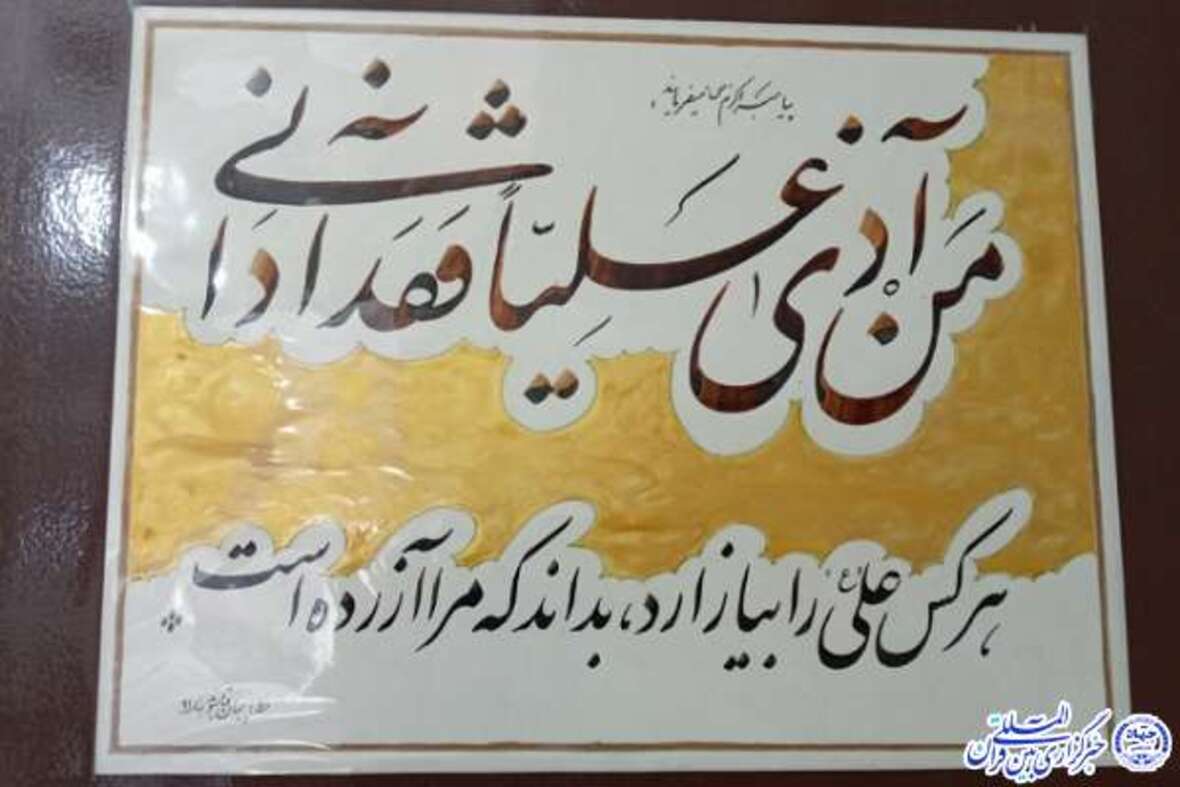 پیامبر اکرم ص میفرمایند:
مَنْ آذی عَلِیّاً فَقَد اذانی
هر کس علی (ع) را بیازارد، بداند که مرا آزرده است
خبرگزاری بین المللی قرآن